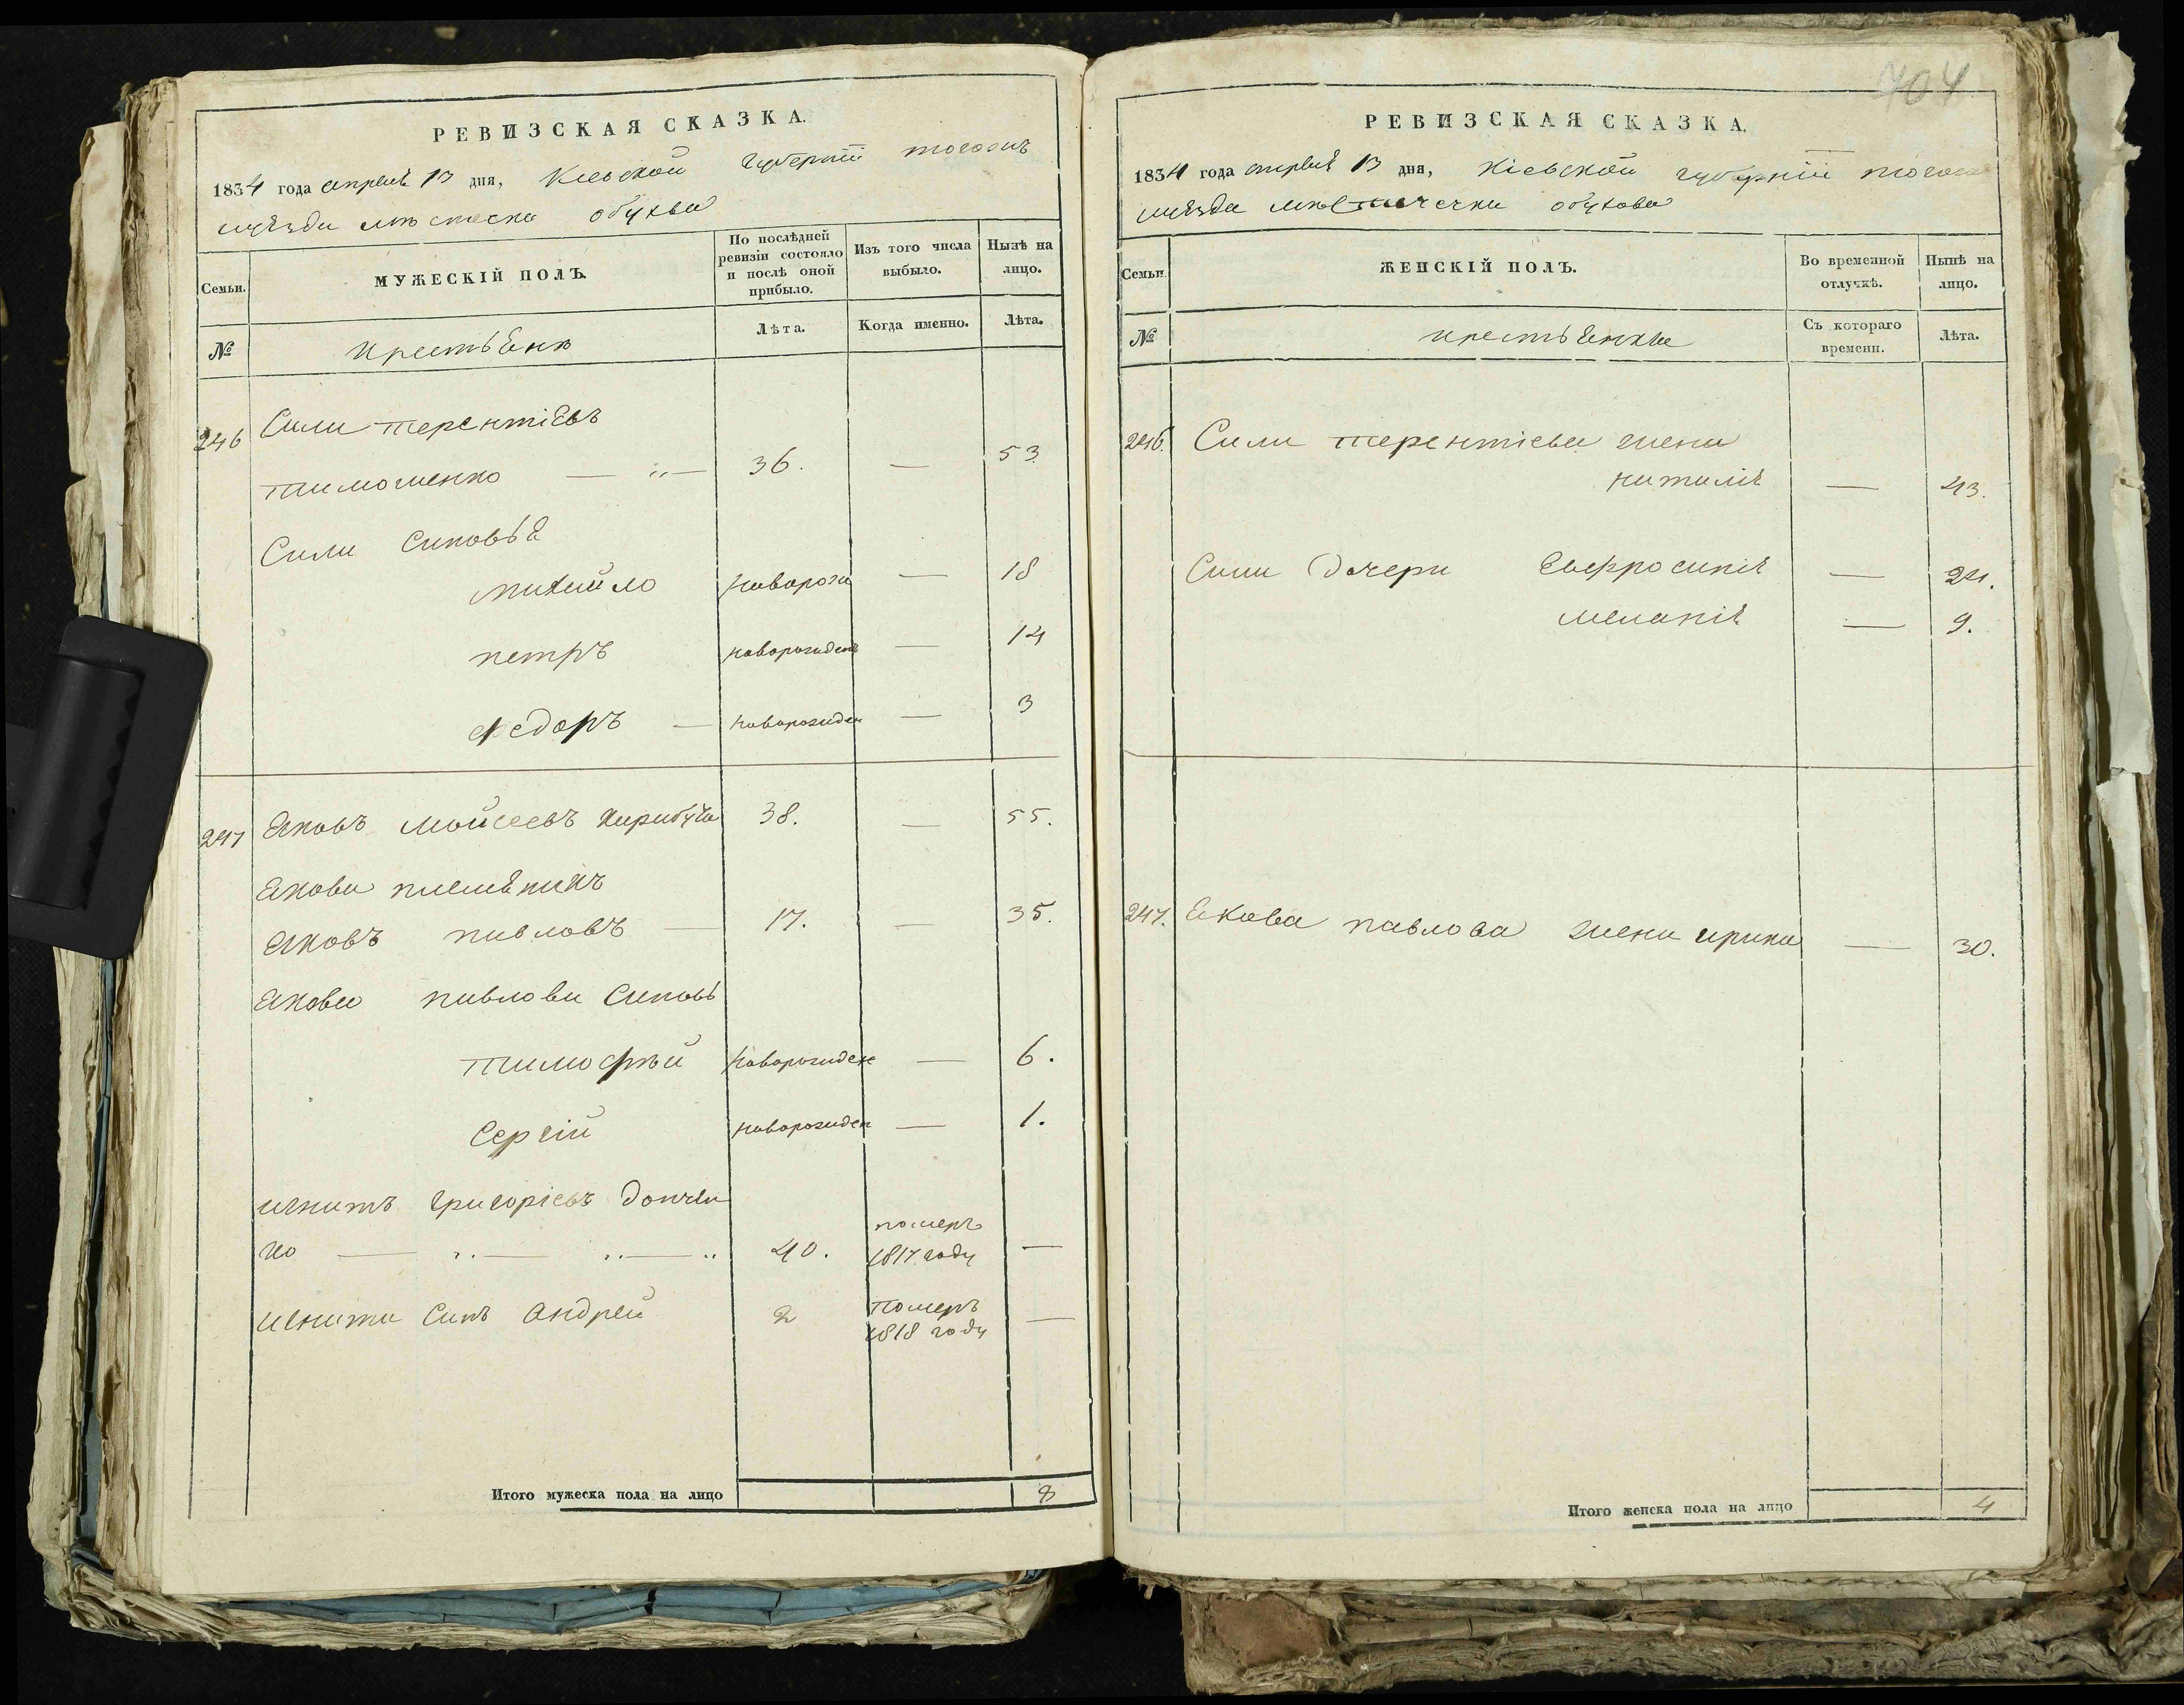 РЕВИЗСКАЯ СКАЗКА.
1834 года апреля 13 дня, Киевской губернїи тогожъ
уѣзда мѣстеска обухова
Семьи.
МУЖЕСКІЙ ПОЛЪ.
По послѣдней ревизіи состояло и послѣ оной прибыло.
Изъ того числа выбыло.
Нынѣ на лицо.
№
крестьяне
Лѣта.
Когда именно.
Лѣта.
246 Сили терентіевъ
тимошенко — 36. — 53
Сили синовья
михайло новорож — 18
петръ новорожден — 14
федоръ — новорожден — 3
247 Яковъ мойсеевъ 38. — 55.
Якова племяникъ
Яковъ павловъ — 17. — 35.
Якова павлова синовь
тимофѣй новорожден — 6.
Сергій новорожден — 1.
игнатъ григоріевъ дончен
ко — 40. померъ 1817 году —
игната синъ андрей 2 померъ 1818 году —
Итого мужеска пола на лицо 8
704
РЕВИЗСКАЯ СКАЗКА.
1834 года апреля 13 дня, Кіевской губернїи тогожъ
уѣзда мѣстечка обухова
Семьи.
ЖЕНСКІЙ ПОЛЪ.
Во временной отлучкѣ.
Нынѣ на лицо.
№
крестьянки
Съ котораго времени.
Лѣта.
246. Сили терентіева жена
наталія — 43.
Сили дочери Евфросинія — 21.
меланія — 9.
247. Якова павлова жена ирина — 30.
Итого женска пола на лицо 4